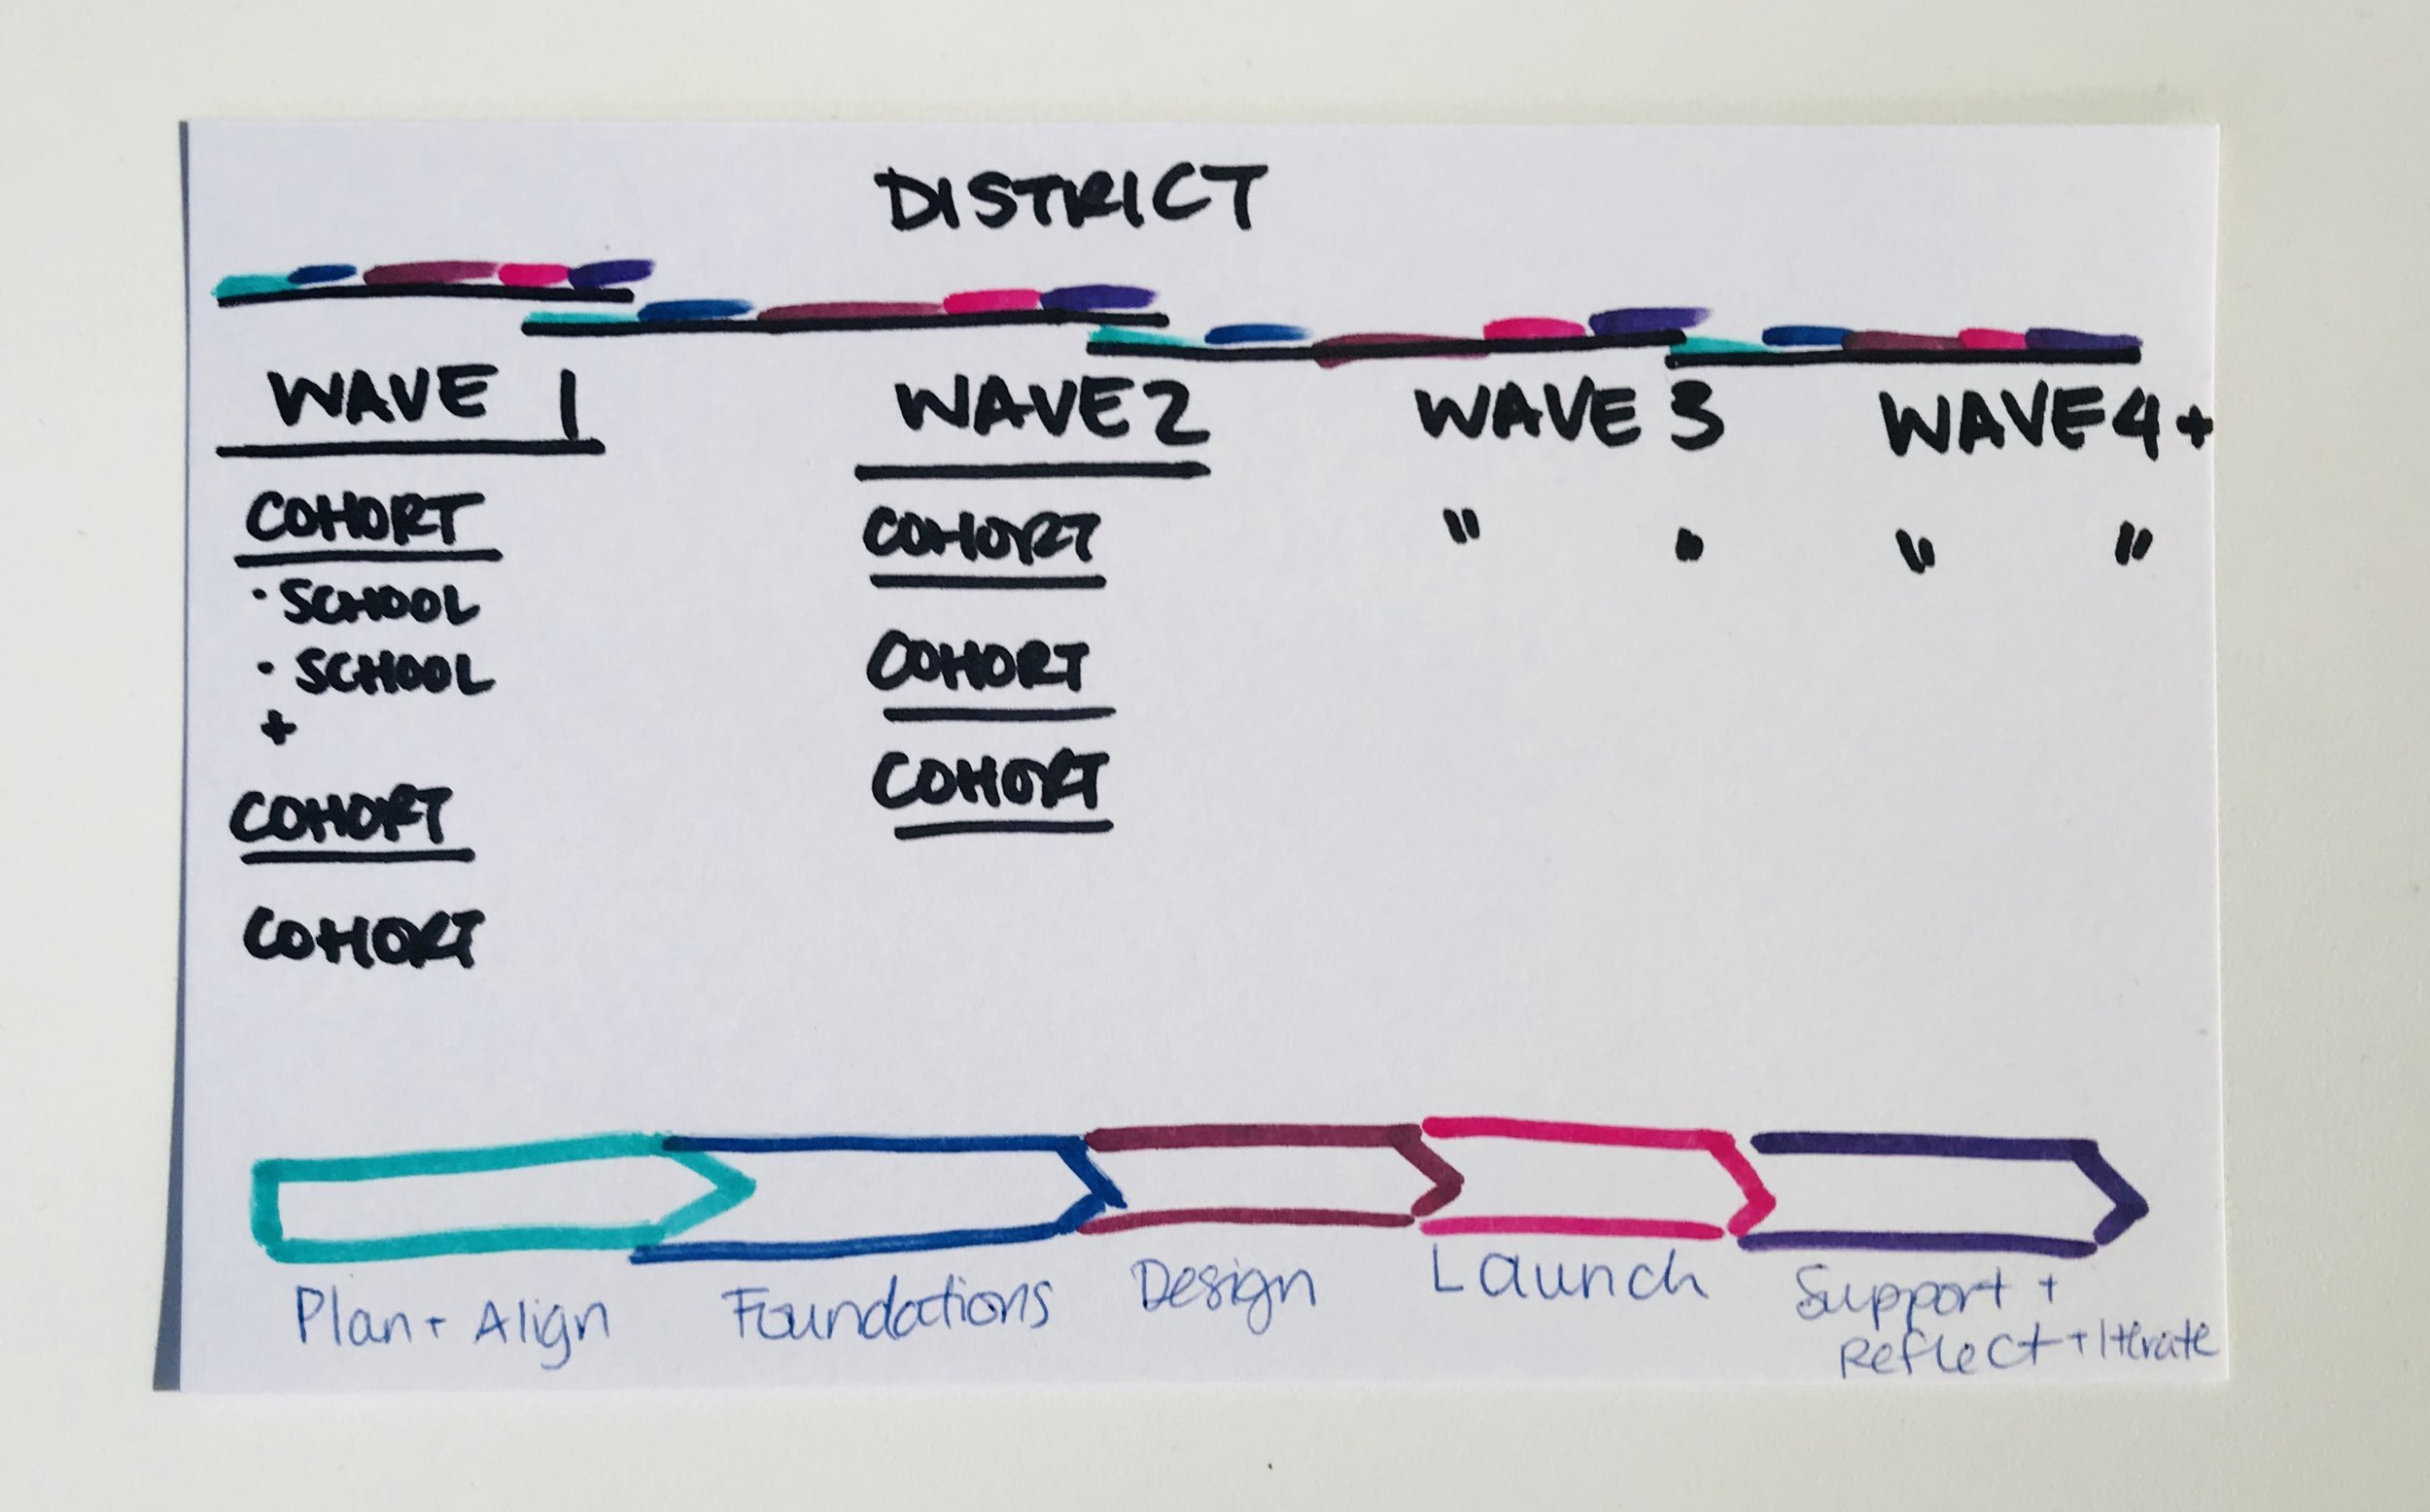 DISTRICT
WAVE 1 WAVE 2 WAVE 3 WAVE 4+
COHORT COHORT " " " "
· SCHOOL
· SCHOOL COHORT
+
COHORT COHORT
COHORT
Plan + Align Foundations Design Launch Support +
Reflect + Iterate